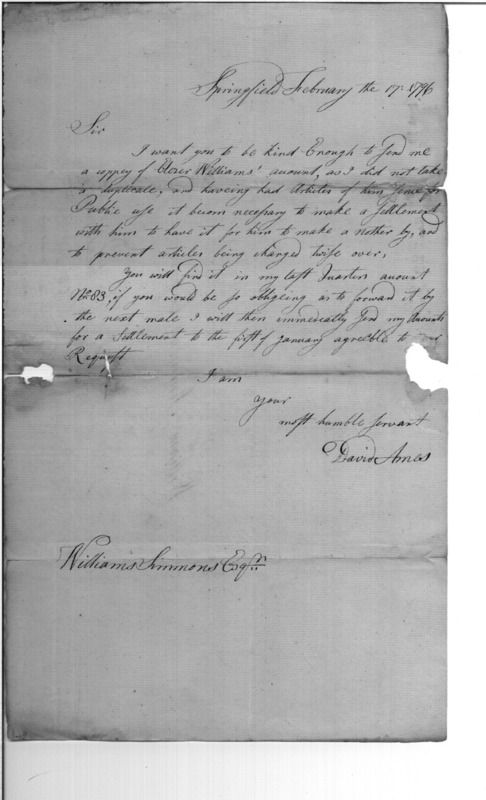 Springfield February the 17th 1796
Sir
I want you to be kind Enough to Send me
a coppey of Elezer Williams' acount, as I did not take
a duplicate, and haveing had Articles of him Sence for
Public use it becom necessary to make a Settlement
with him to have it for him to make a nother by, and
to prevent articles being charged twise over,
You will find it in my last Quarters acount
No. 83, if you would be so obligeing as to forward it by
the next male I will then immedically Send my Acounts
for a Settlement to the first of January agreeble to
Request
I am
your
most humble servant
David Ames
William Simmons Esqr.